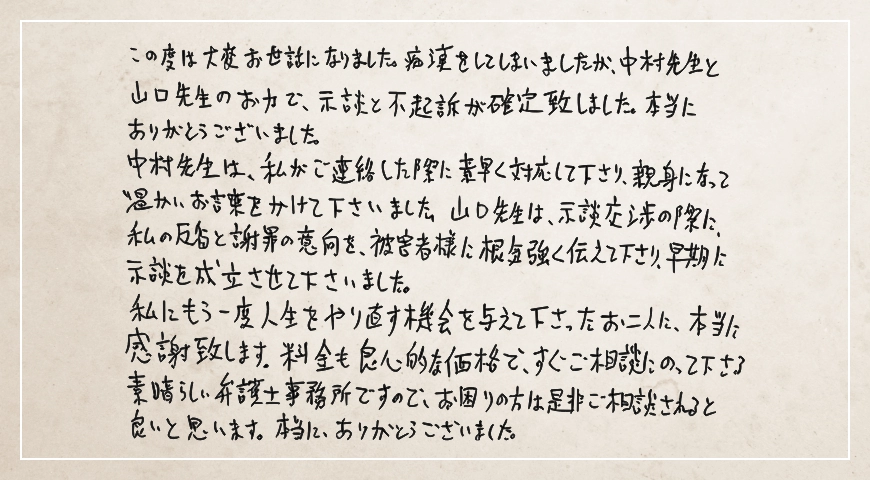 この度は大変お世話になりました。痴漢をしてしまいましたが、中村先生と
山口先生のお力で、示談と不起訴が確定致しました。本当に
ありがとうございました。
中村先生は、私がご連絡した際に素早く対応して下さり、親身になって
温かいお言葉をかけて下さいました。山口先生は、示談交渉の際に、
私の反省と謝罪の意向を、被害者様に根気強く伝えて下さり、早期に
示談を成立させて下さいました。
私にもう一度人生をやり直す機会を与えて下さったお二人に、本当に
感謝致します。料金も良心的な価格で、すぐご相談にのって下さる
素晴らしい弁護士事務所ですので、お困りの方は是非ご相談されると
良いと思います。本当に、ありがとうございました。